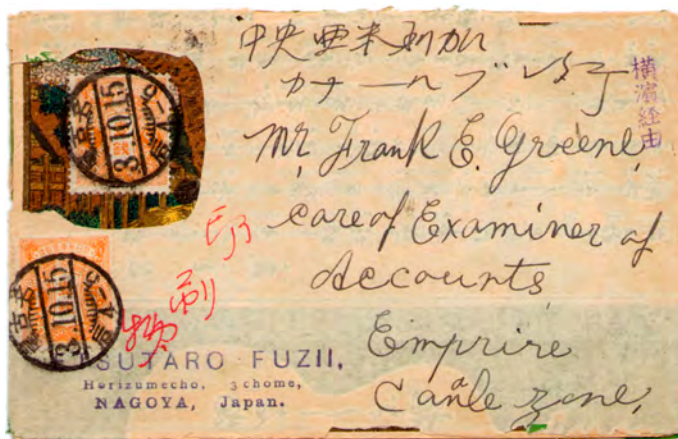 中央亜米利加
カナール
横濱経由
Mr, Frank E. Greene,
care of Examiner of
Accounts,
Emprire
Canle zone,
印刷物
3.10.15
3.10.15
SUTARO FUZII,
Horizumecho, 3chome,
NAGOYA, Japan.